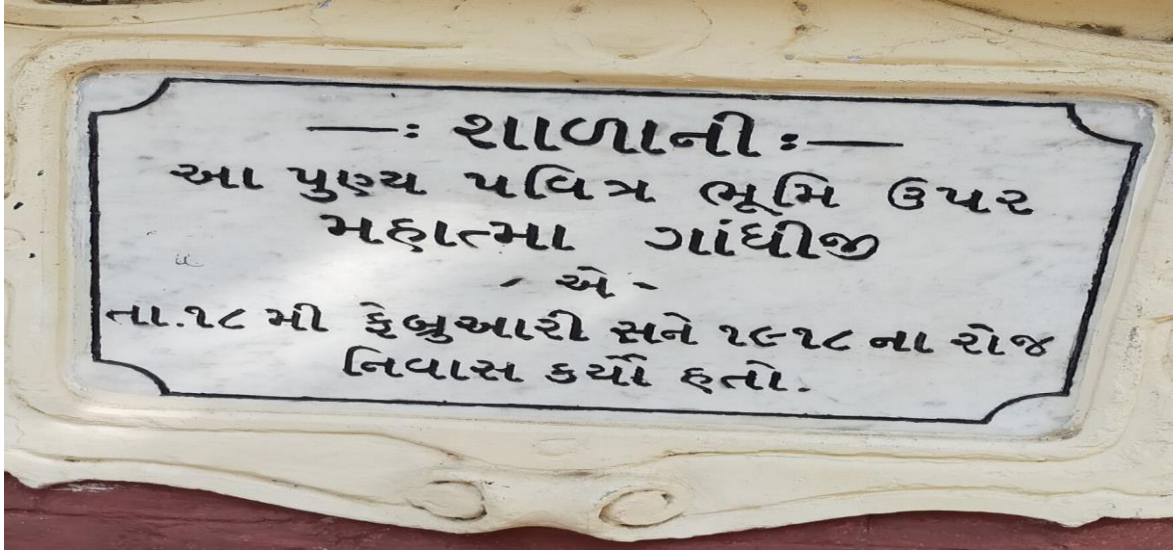 —: શાળાની :—
આ પુણ્ય પવિત્ર ભૂમિ ઉપર
મહાત્મા ગાંધીજી
- એ -
તા.૧૮ મી ફેબ્રુઆરી સને ૧૯૧૮ ના રોજ
નિવાસ કર્યો હતો.